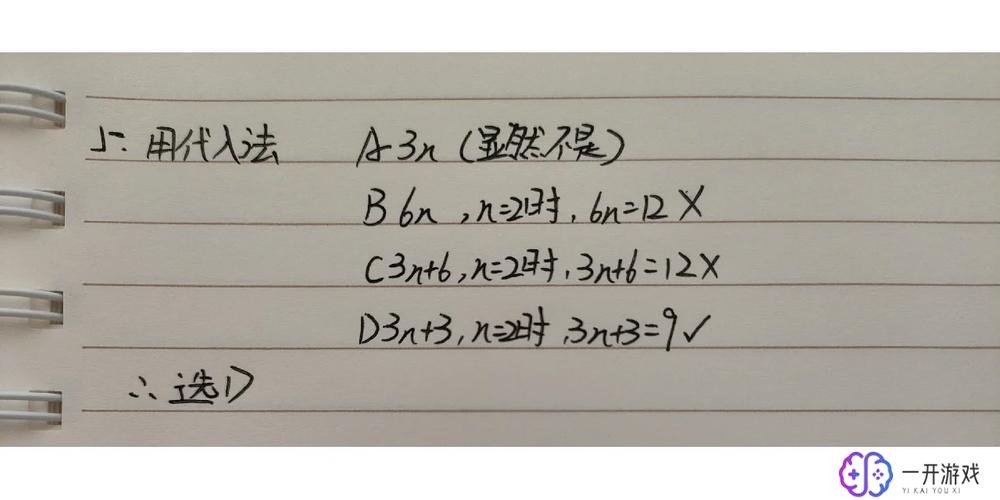 5: 用代入法 A 3n (显然不是)
B 6n, n=2时, 6n=12 ×
C 3n+6, n=2时, 3n+6=12 ×
D 3n+3, n=2时, 3n+3=9 ✓
∴ 选D
一开游戏
YI KAI YOU XI